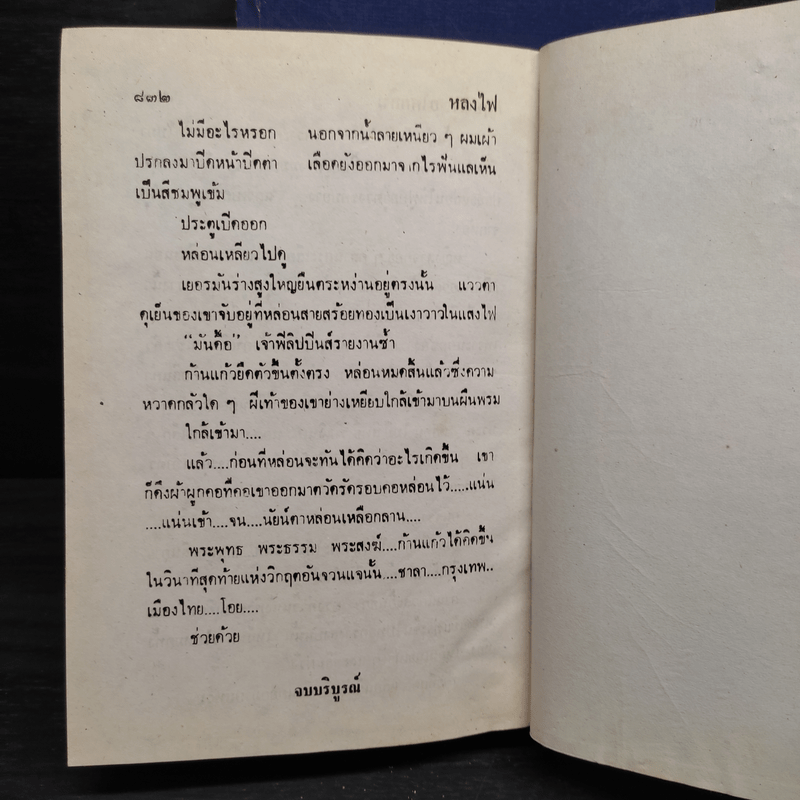 ๘๓๒ หลงไฟ
ไม่มีอะไรหรอก นอกจากน้ำลายเหนียว ๆ ผมเผ้า
ปรกลงมาปิดหน้าปิดตา เลือดยังออกมาจากไรฟันแลเห็น
เป็นสีชมพูเข้ม
ประตูเปิดออก
หล่อนเหลียวไปดู
เยอรมันร่างสูงใหญ่ยืนตระหง่านอยู่ตรงนั้น แววตา
ดุเย็นของเขาจับอยู่ที่หล่อนสายสร้อยทองเป็นเงาวาวในแสงไฟ
“มันดื้อ” เจ้าฟีลิปปีนส์รายงานซ้ำ
ก้านแก้วยืดตัวขึ้นตั้งตรง หล่อนหมดสิ้นแล้วซึ่งความ
หวาดกลัวใด ๆ ฝีเท้าของเขาย่างเหยียบใกล้เข้ามาบนผืนพรม
ใกล้เข้ามา....
แล้ว....ก่อนที่หล่อนจะทันได้คิดว่าอะไรเกิดขึ้น เขา
ก็ดึงผ้าผูกคอที่คอเขาออกมาตวัดรัดรอบคอหล่อนไว้.....แน่น
....แน่นเข้า....จน....นัยน์ตาหล่อนเหลือกลาน....
พระพุทธ พระธรรม พระสงฆ์....ก้านแก้วได้คิดขึ้น
ในวินาทีสุดท้ายแห่งวิกฤตอันจวนแจนั้น....ชาลา....กรุงเทพ..
เมืองไทย....โอย....
ช่วยด้วย
จบบริบูรณ์